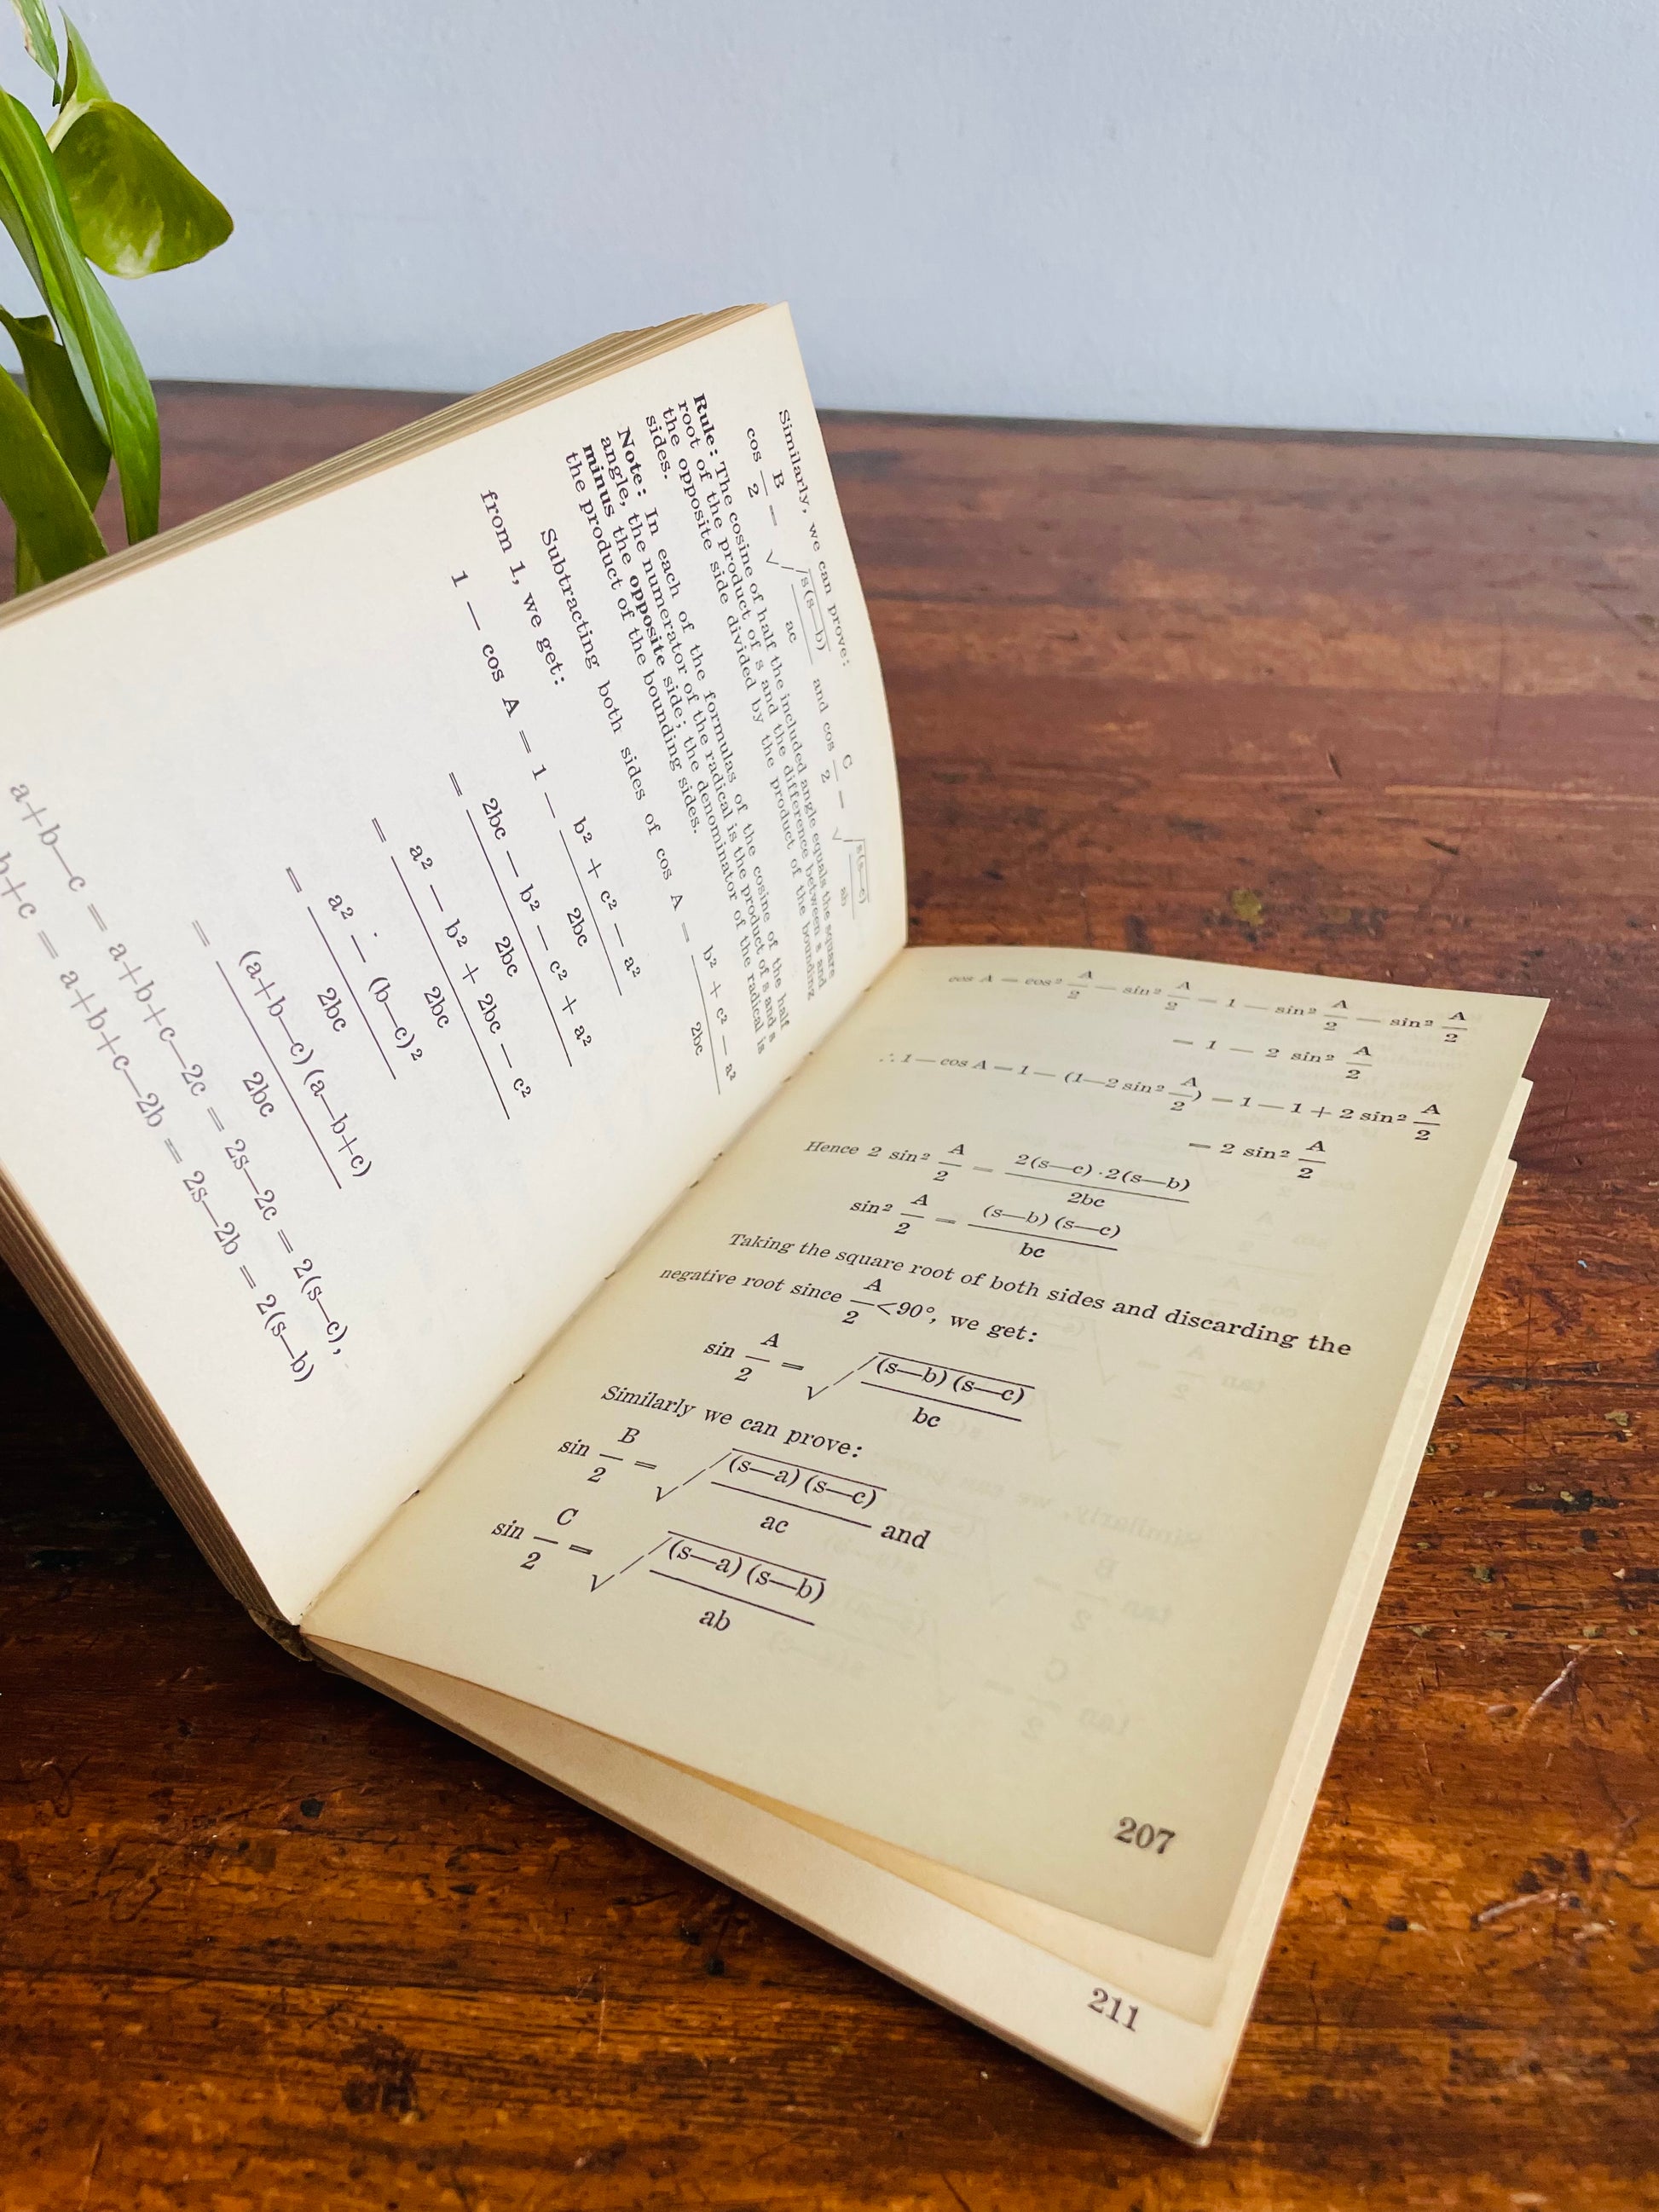 Similarly, we can prove:
cos B/2 = √(s(s—b)/ac) and cos C/2 = √(s(s—c)/ab)
Rule: The cosine of half the included angle equals the square
root of the product of s and the difference between s and
the opposite side divided by the product of the bounding
sides.
Note: In each of the formulas of the cosine of the half
angle, the numerator of the radical is the product of s and s
minus the opposite side; the denominator of the radical is
the product of the bounding sides.
Subtracting both sides of cos A = (b² + c² — a²)/2bc
from 1, we get:
1 — cos A = 1 — (b² + c² — a²)/2bc
= (2bc — b² — c² + a²)/2bc
= (a² — b² + 2bc — c²)/2bc
= (a² — (b—c)²)/2bc
= (a+b—c)(a—b+c)/2bc
a+b—c = a+b+c—2c = 2s—2c = 2(s—c),
b+c = a+b+c—2b = 2s—2b = 2(s—b)
cos A = cos² A/2 — sin² A/2 = 1 — sin² A/2 — sin² A/2
= 1 — 2 sin² A/2
∴ 1 — cos A = 1 — (1—2 sin² A/2) = 1 — 1 + 2 sin² A/2
= 2 sin² A/2
Hence 2 sin² A/2 = 2(s—c)·2(s—b)/2bc
sin² A/2 = (s—b)(s—c)/bc
Taking the square root of both sides and discarding the
negative root since A/2 <90°, we get:
sin A/2 = √((s—b)(s—c)/bc)
Similarly we can prove:
sin B/2 = √((s—a)(s—c)/ac) and
sin C/2 = √((s—a)(s—b)/ab)
207
211